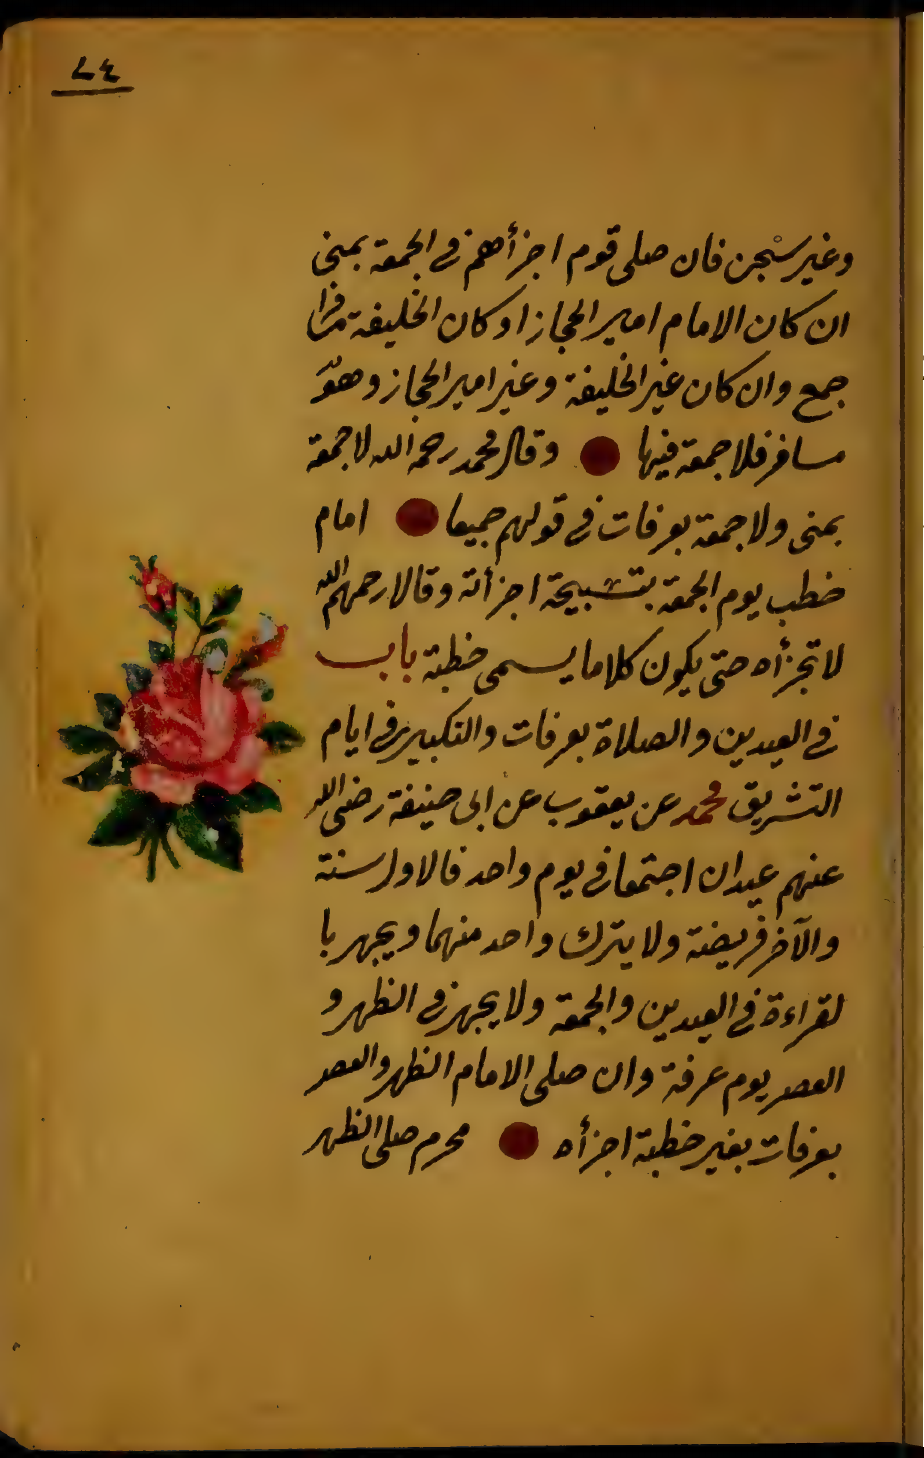 ٢٤
وغير سجن فان صلى قوم اجزأهم في الجمعة بمنى
ان كان الامام امير الحجاز او كان الخليفة مسافرا
جمع وان كان غير الخليفة وغير امير الحجاز وهو
مسافر فلا جمعة فيها وقال محمد رحمه الله لا جمعة
بمنى ولا جمعة بعرفات في قولهم جميعا امام
خطب يوم الجمعة بتسبيحة اجزأته وقالا رحمهم الله
لا تجزأه حتى يكون كلاما يسمى خطبة باب
في العيدين والصلاة بعرفات والتكبير في ايام
التشريق محمد عن يعقوب عن ابى حنيفة رضى الله
عنهم عيدان اجتمعا في يوم واحد فالاول سنة
والآخر فريضة ولا يترك واحد منهما ويجهر با
لقراءة في العيدين والجمعة ولا يجهر في الظهر و
العصر يوم عرفة وان صلى الامام الظهر والعصر
بعرفات بغير خطبة اجزأه محرم صلى الظهر